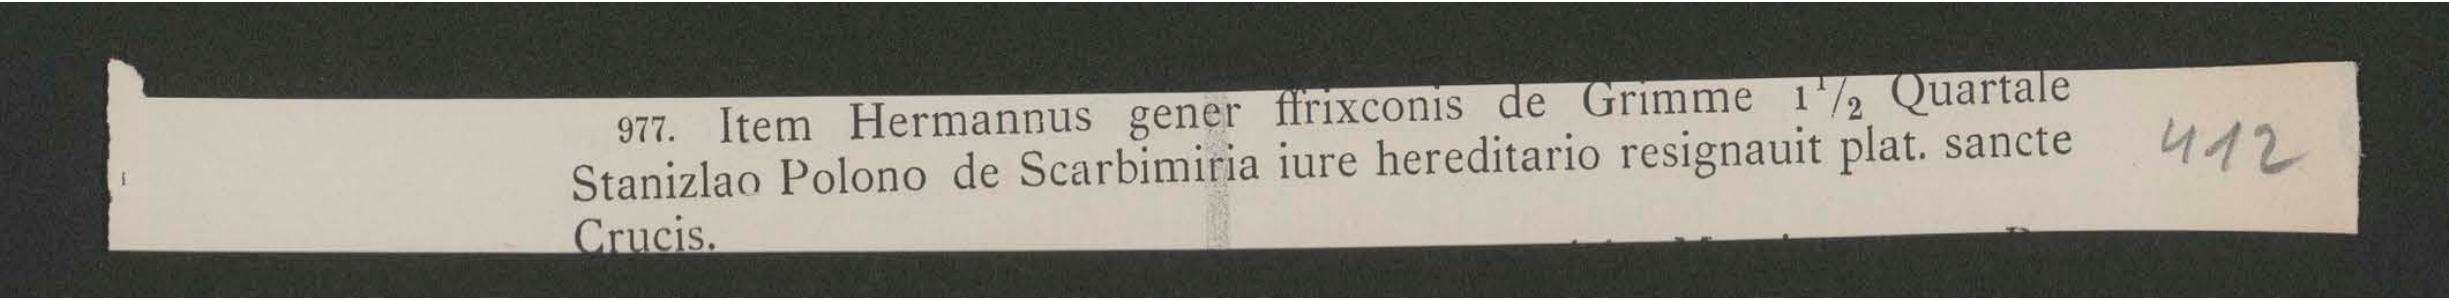 977. Item Hermannus gener ffrixconis de Grimme 1 1/2 Quartale
Stanizlao Polono de Scarbimiria iure hereditario resignauit plat. sancte
Crucis.
412